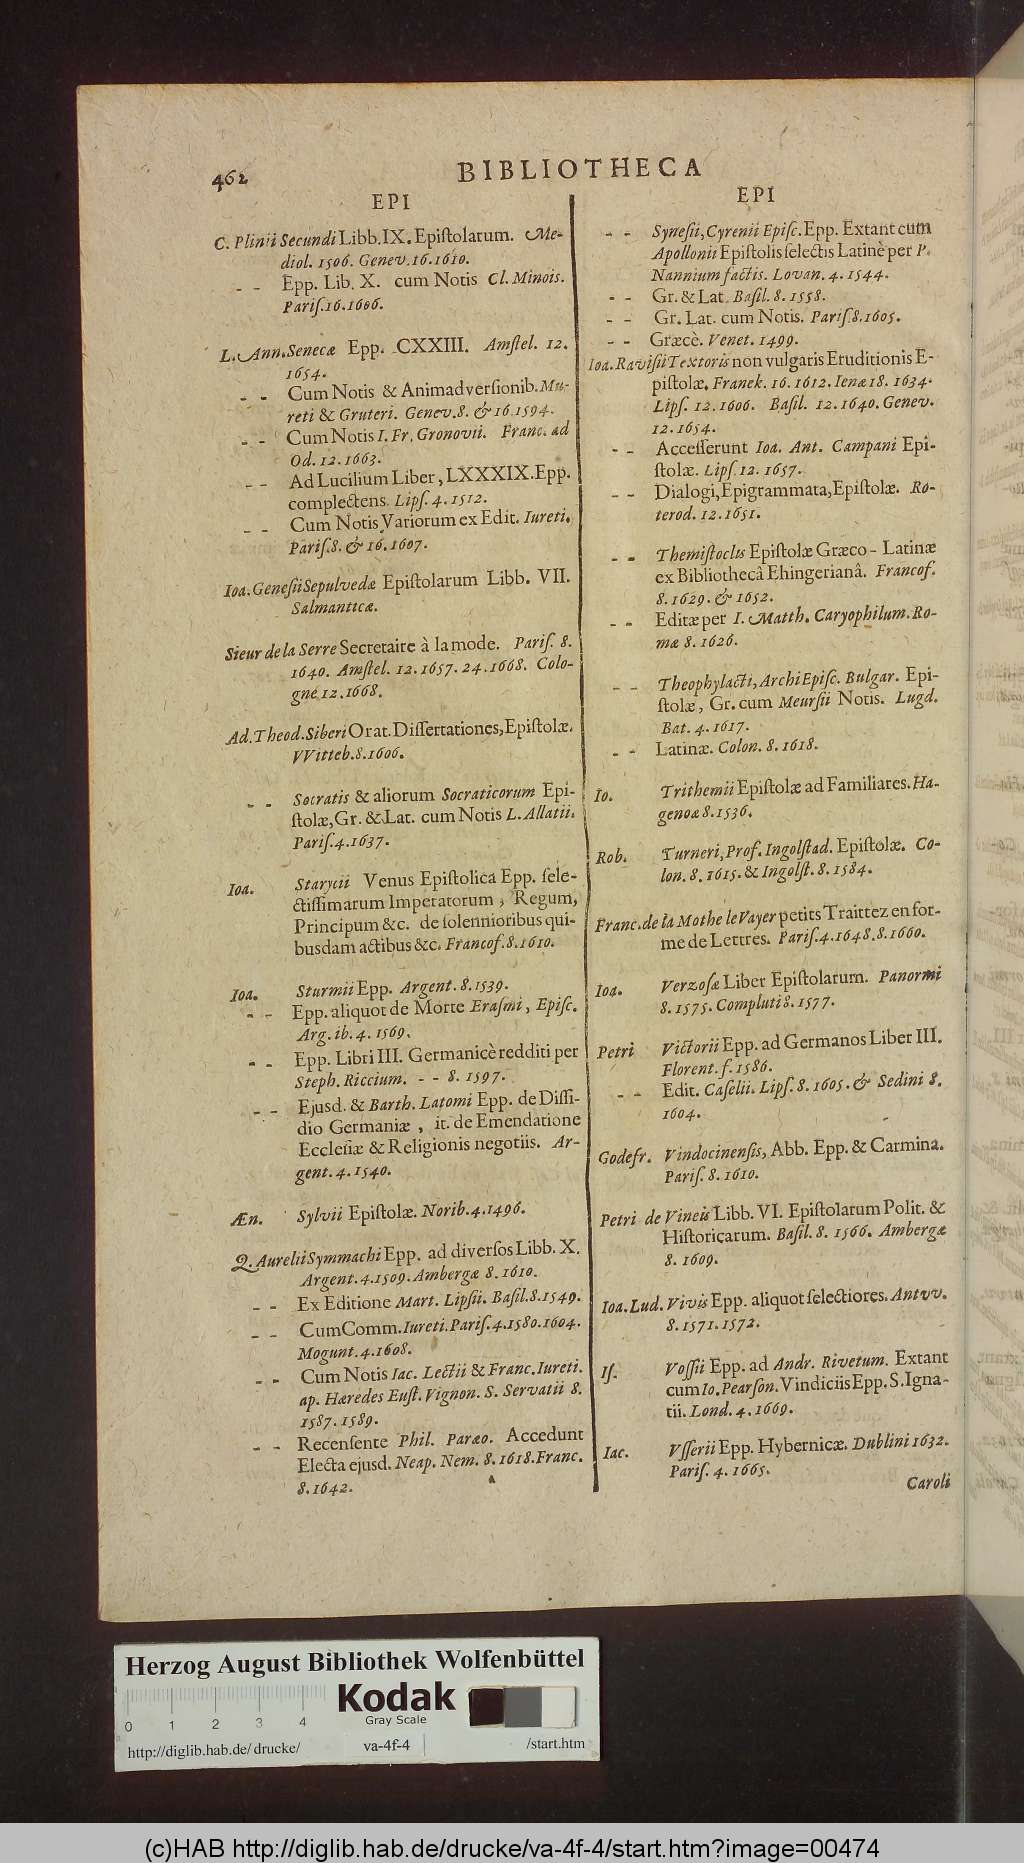 462
BIBLIOTHECA
EPI
C. Plinii Secundi Libb. IX. Epiſtolarum. Me-
diol. 1506. Genev. 16. 1610.
- - Epp. Lib. X. cum Notis Cl. Minois.
Pariſ. 16. 1606.
L. Ann. Senecæ Epp. CXXIII. Amſtel. 12.
1654.
- - Cum Notis & Animadverſionib. Mu-
reti & Gruteri. Genev. 8. & 16. 1594.
- - Cum Notis I. Fr. Gronovii. Franc. ad
Od. 12. 1663.
- - Ad Lucilium Liber, LXXXIX. Epp.
complectens. Lipſ. 4. 1512.
- - Cum Notis Variorum ex Edit. Iureti.
Pariſ. 8. & 16. 1607.
Ioa. Geneſii Sepulvedæ Epiſtolarum Libb. VII.
Salmanticæ.
Sieur de la Serre Secretaire à la mode. Pariſ. 8.
1640. Amſtel. 12. 1657. 24. 1668. Colo-
gne 12. 1668.
Ad. Theod. Siberi Orat. Diſſertationes, Epiſtolæ.
VVitteb. 8. 1606.
- - Socratis & aliorum Socraticorum Epi-
ſtolæ, Gr. & Lat. cum Notis L. Allatii.
Pariſ. 4. 1637.
Ioa. Starycii Venus Epiſtolica Epp. ſele-
ctiſſimarum Imperatorum, Regum,
Principum &c. de ſolennioribus qui-
busdam actibus &c. Francof. 8. 1610.
Ioa. Sturmii Epp. Argent. 8. 1539.
- - Epp. aliquot de Morte Eraſmi, Epiſc.
Arg. ib. 4. 1569.
- - Epp. Libri III. Germanicè redditi per
Steph. Riccium. - - 8. 1597.
- - Ejusd. & Barth. Latomi Epp. de Diſſi-
dio Germaniæ, it. de Emendatione
Eccleſiæ & Religionis negotiis. Ar-
gent. 4. 1540.
Æn. Sylvii Epiſtolæ. Norib. 4. 1496.
Q. Aurelii Symmachi Epp. ad diverſos Libb. X.
Argent. 4. 1509. Ambergæ 8. 1610.
- - Ex Editione Mart. Lipſii. Baſil. 8. 1549.
- - Cum Comm. Iureti. Pariſ. 4. 1580. 1604.
Mogunt. 4. 1608.
- - Cum Notis Iac. Lectii & Franc. Iureti.
ap. Hæredes Euſt. Vignon. S. Servatii 8.
1587. 1589.
- - Recenſente Phil. Paræo. Accedunt
Electa ejusd. Neap. Nem. 8. 1618. Franc.
8. 1642.
EPI
- - Syneſii, Cyrenii Epiſc. Epp. Extant cum
Apollonii Epiſtolis ſelectis Latinè per P.
Nannium factis. Lovan. 4. 1544.
- - Gr. & Lat. Baſil. 8. 1558.
- - Gr. Lat. cum Notis. Pariſ. 8. 1605.
- - Græcè. Venet. 1499.
Ioa. Raviſii Textoris non vulgaris Eruditionis E-
piſtolæ. Franek. 16. 1612. Ienæ 18. 1634.
Lipſ. 12. 1606. Baſil. 12. 1640. Genev.
12. 1654.
- - Acceſſerunt Ioa. Ant. Campani Epi-
ſtolæ. Lipſ. 12. 1657.
- - Dialogi, Epigrammata, Epiſtolæ. Ro-
terod. 12. 1651.
- - Themiſtoclis Epiſtolæ Græco-Latinæ
ex Bibliothecâ Ehingerianâ. Francof.
8. 1629. & 1652.
- - Editæ per I. Matth. Caryophilum. Ro-
mæ 8. 1626.
- - Theophylacti, Archi Epiſc. Bulgar. Epi-
ſtolæ, Gr. cum Meurſii Notis. Lugd.
Bat. 4. 1617.
- - Latinæ. Colon. 8. 1618.
Io. Trithemii Epiſtolæ ad Familiares. Ha-
genoæ 8. 1536.
Rob. Turneri, Prof. Ingolſtad. Epiſtolæ. Co-
lon. 8. 1615. & Ingolſt. 8. 1584.
Franc. de la Mothe le Vayer petits Traittez en for-
me de Lettres. Pariſ. 4. 1648. 8. 1660.
Ioa. Verzoſæ Liber Epiſtolarum. Panormi
8. 1575. Compluti 8. 1577.
Petri Victorii Epp. ad Germanos Liber III.
Florent. f. 1586.
- - Edit. Caſelii. Lipſ. 8. 1605. & Sedini 8.
1604.
Godefr. Vindocinenſis, Abb. Epp. & Carmina.
Pariſ. 8. 1610.
Petri de Vineis Libb. VI. Epiſtolarum Polit. &
Hiſtoricarum. Baſil. 8. 1566. Ambergæ
8. 1609.
Ioa. Lud. Vivis Epp. aliquot ſelectiores. Antvv.
8. 1571. 1572.
Iſ. Voſſii Epp. ad Andr. Rivetum. Extant
cum Io. Pearſon. Vindiciis Epp. S. Igna-
tii. Lond. 4. 1669.
Iac. Vſſerii Epp. Hybernicæ. Dublini 1632.
Pariſ. 4. 1665.
Caroli
Herzog August Bibliothek Wolfenbüttel
Kodak
Gray Scale
0 1 2 3 4
http://diglib.hab.de/drucke/ va-4f-4 /start.htm
(c)HAB http://diglib.hab.de/drucke/va-4f-4/start.htm?image=00474